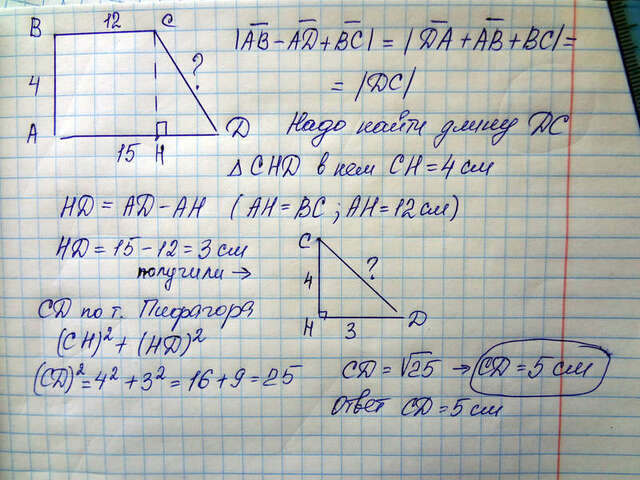 B 12 C
4
?
A 15 H D
|AB - AD + BC| = |DA + AB + BC| =
= |DC|
Надо найти длину DC
△ CHD в нем CH = 4 см
HD = AD - AH (AH = BC ; AH = 12 см)
HD = 15 - 12 = 3 см
получили →
C
4
?
H 3 D
CD по т. Пифагора
(CH)² + (HD)²
(CD)² = 4² + 3² = 16 + 9 = 25
CD = √25 → CD = 5 см
Ответ CD = 5 см